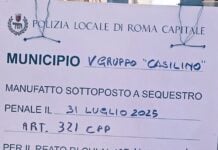 POLIZIA LOCALE DI ROMA CAPITALE
MUNICIPIO V GRUPPO "CASILINO"
MANUFATTO SOTTOPOSTO A SEQUESTRO
PENALE IL 31 LUGLIO 2025
ART. 321 CPP
PER IL REATO DI CUI